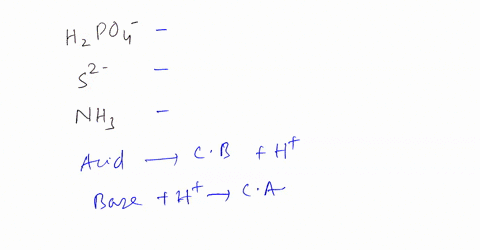 H₂PO₄⁻ –
S²⁻ –
NH₃ –
Acid ⟶ C.B + H⁺
Base + H⁺ ⟶ C.A